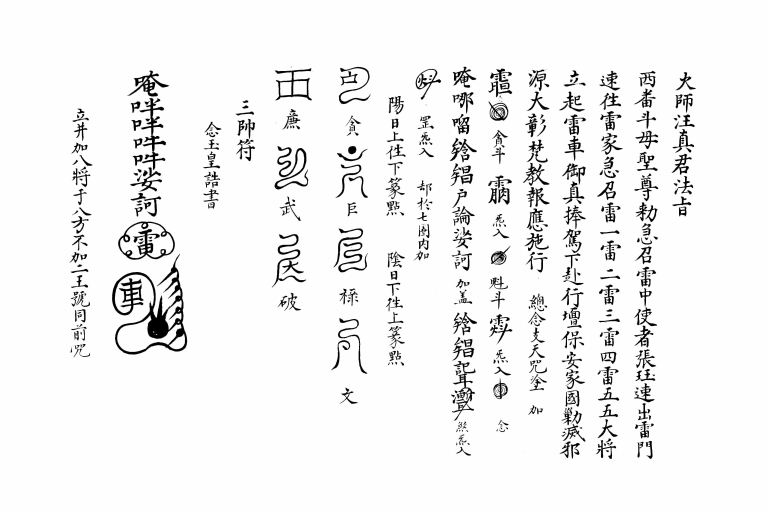 大師汪真君法旨
西番斗母聖尊勅急召雷中使者張珏速出雷門
速往雷家急召雷一雷二雷三雷四雷五五大將
立起雷車御真捧駕下赴行壇保安家國勦滅邪
源大彰梵教報應施行 總念支天咒塗 加
貪斗 炁入 魁斗 炁入 念
唵哪𠺗 戶論娑訶 加蓋 煞炁入
罡炁入 却於七圈内加
陽日上往下篆點 陰日下往上篆點
貪 巨 祿 文
廉 武 破
三帥符
念玉皇誥書
唵吽吽吽吽娑訶
雷
車
立并加八將于八方不加二王號同前咒